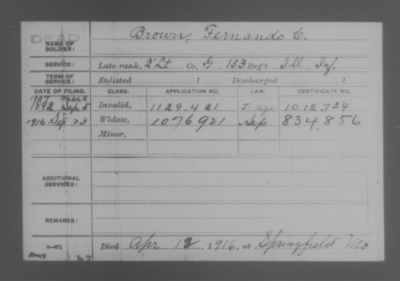 DEAD
NAME OF SOLDIER: Brown, Fernando C.
SERVICE: Late rank, 2' Lt Co. G, 133 Regt Ill. Inf.
TERM OF SERVICE: Enlisted , 1 Discharged , 1
DATE OF FILING. CLASS. APPLICATION NO. LAW. CERTIFICATE NO.
1892 Sep 5 Invalid, 1129.421 age 1012.724
1916 Sep 22 Widow, 1076921 Sep 834.856
Minor,
ADDITIONAL SERVICES:
REMARKS:
Died Apr 12, 1916, at Springfield Mo